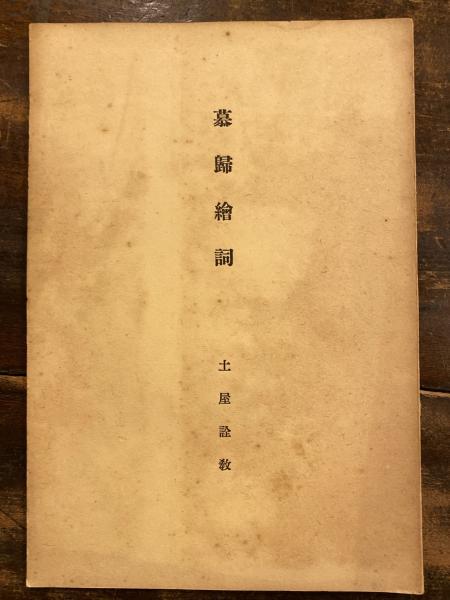 慕歸繪詞
土屋詮教